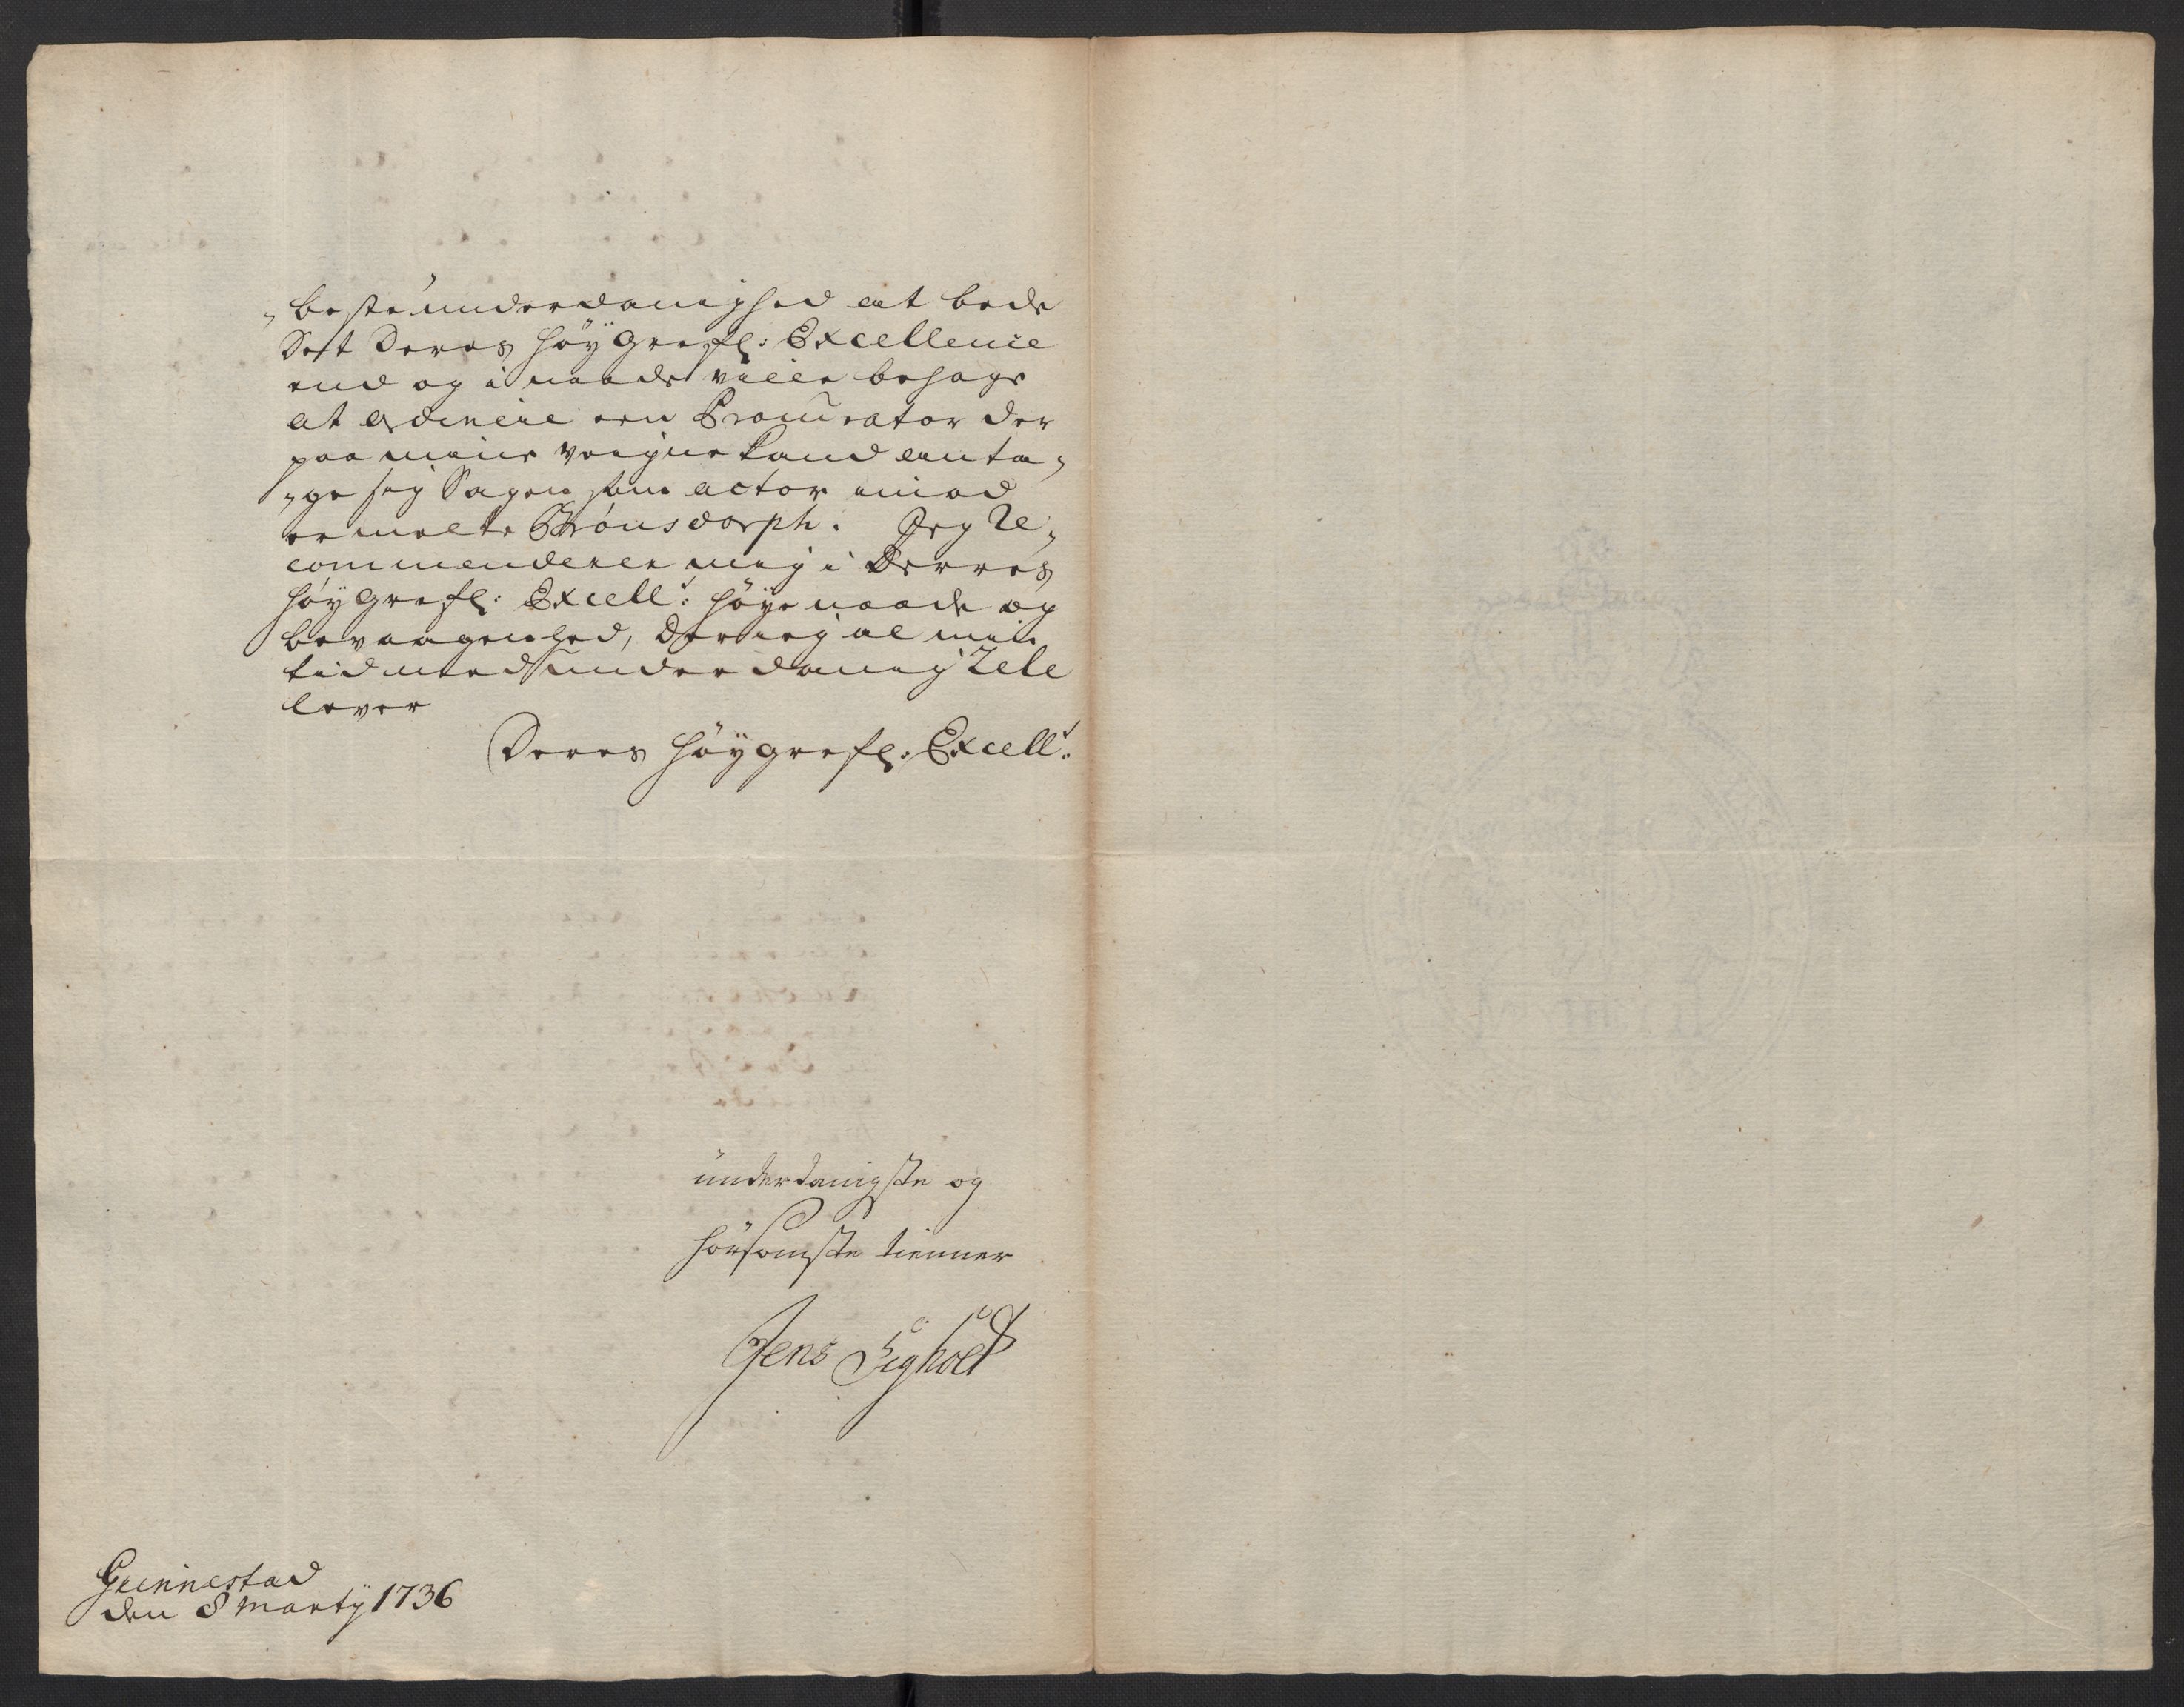 „beste underdanighed at bede
Det Deres höÿ Grefl: Excellence
end og i naade ville behage
at ordinere een Procurator der
paa mine veigne kand anta„
„ge sig Sagen som actor imod
ermelte Trönsdorph. Jeg Re„
commenderer mig i Derres
höÿ Grefl: Excell: höye naade og
bevaagenhed, der ieg al min
tid med underdanig Zele
lever
Deres höÿgrefl: Excell:
ünderdanigste og
hörsomste tienner
Jens Sigholt
Gunnestad
den 8 Martÿ 1736